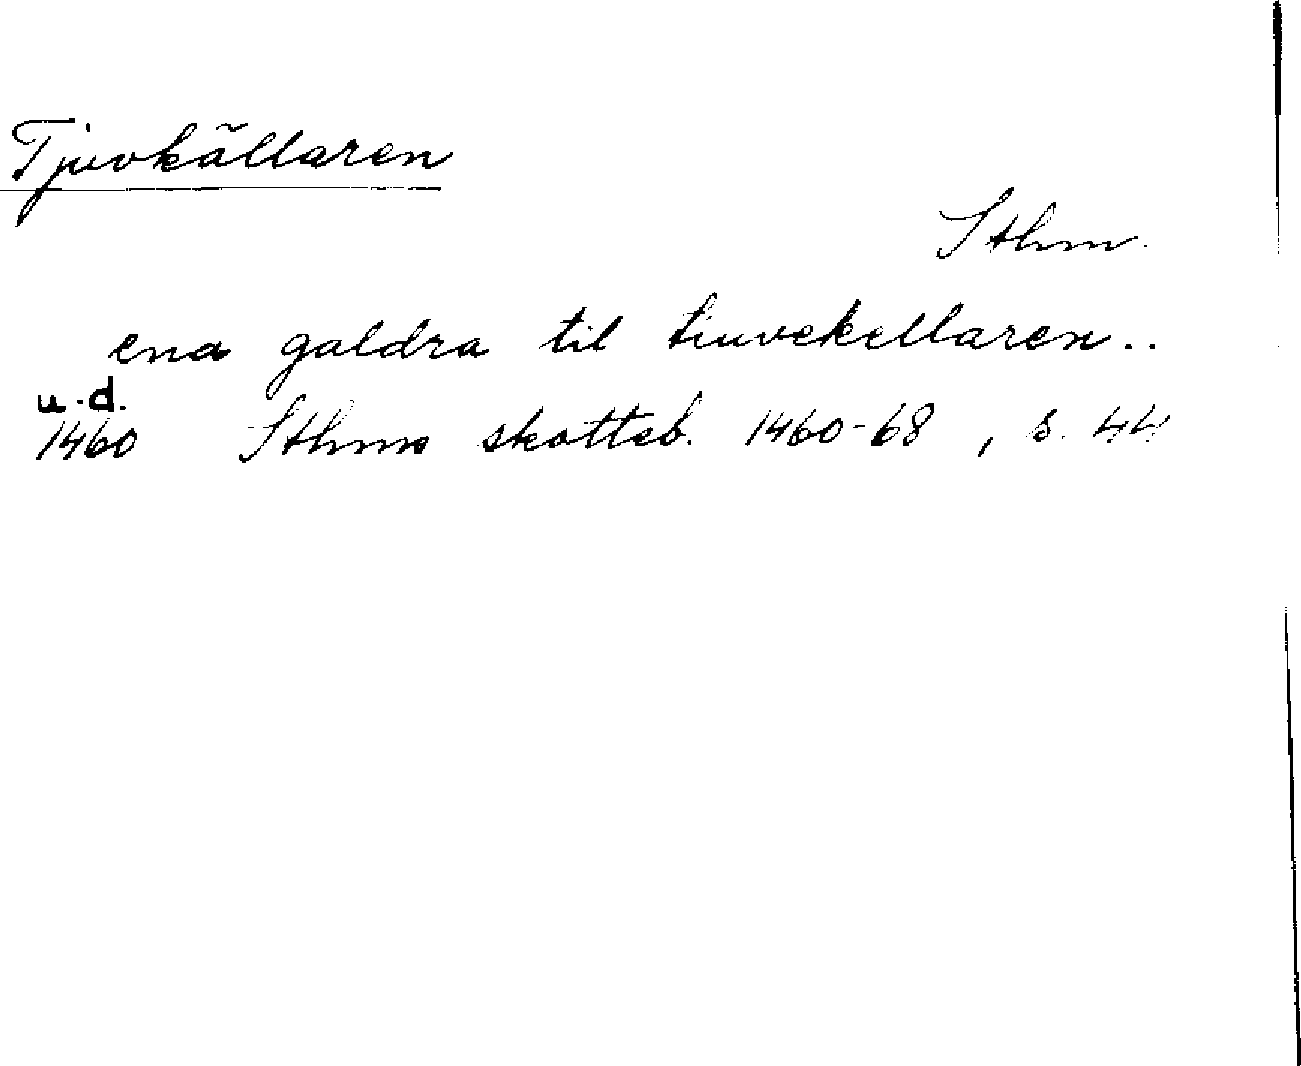 Tjuvkällaren
Sthm.
ena galdra til tiuvekellaren..
u.d.
1460 Sthms skotteb. 1460-68, s. 44